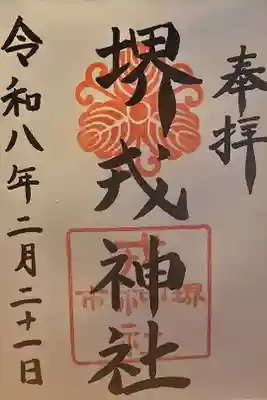 奉拝
堺戎神社
令和八年二月二十一日